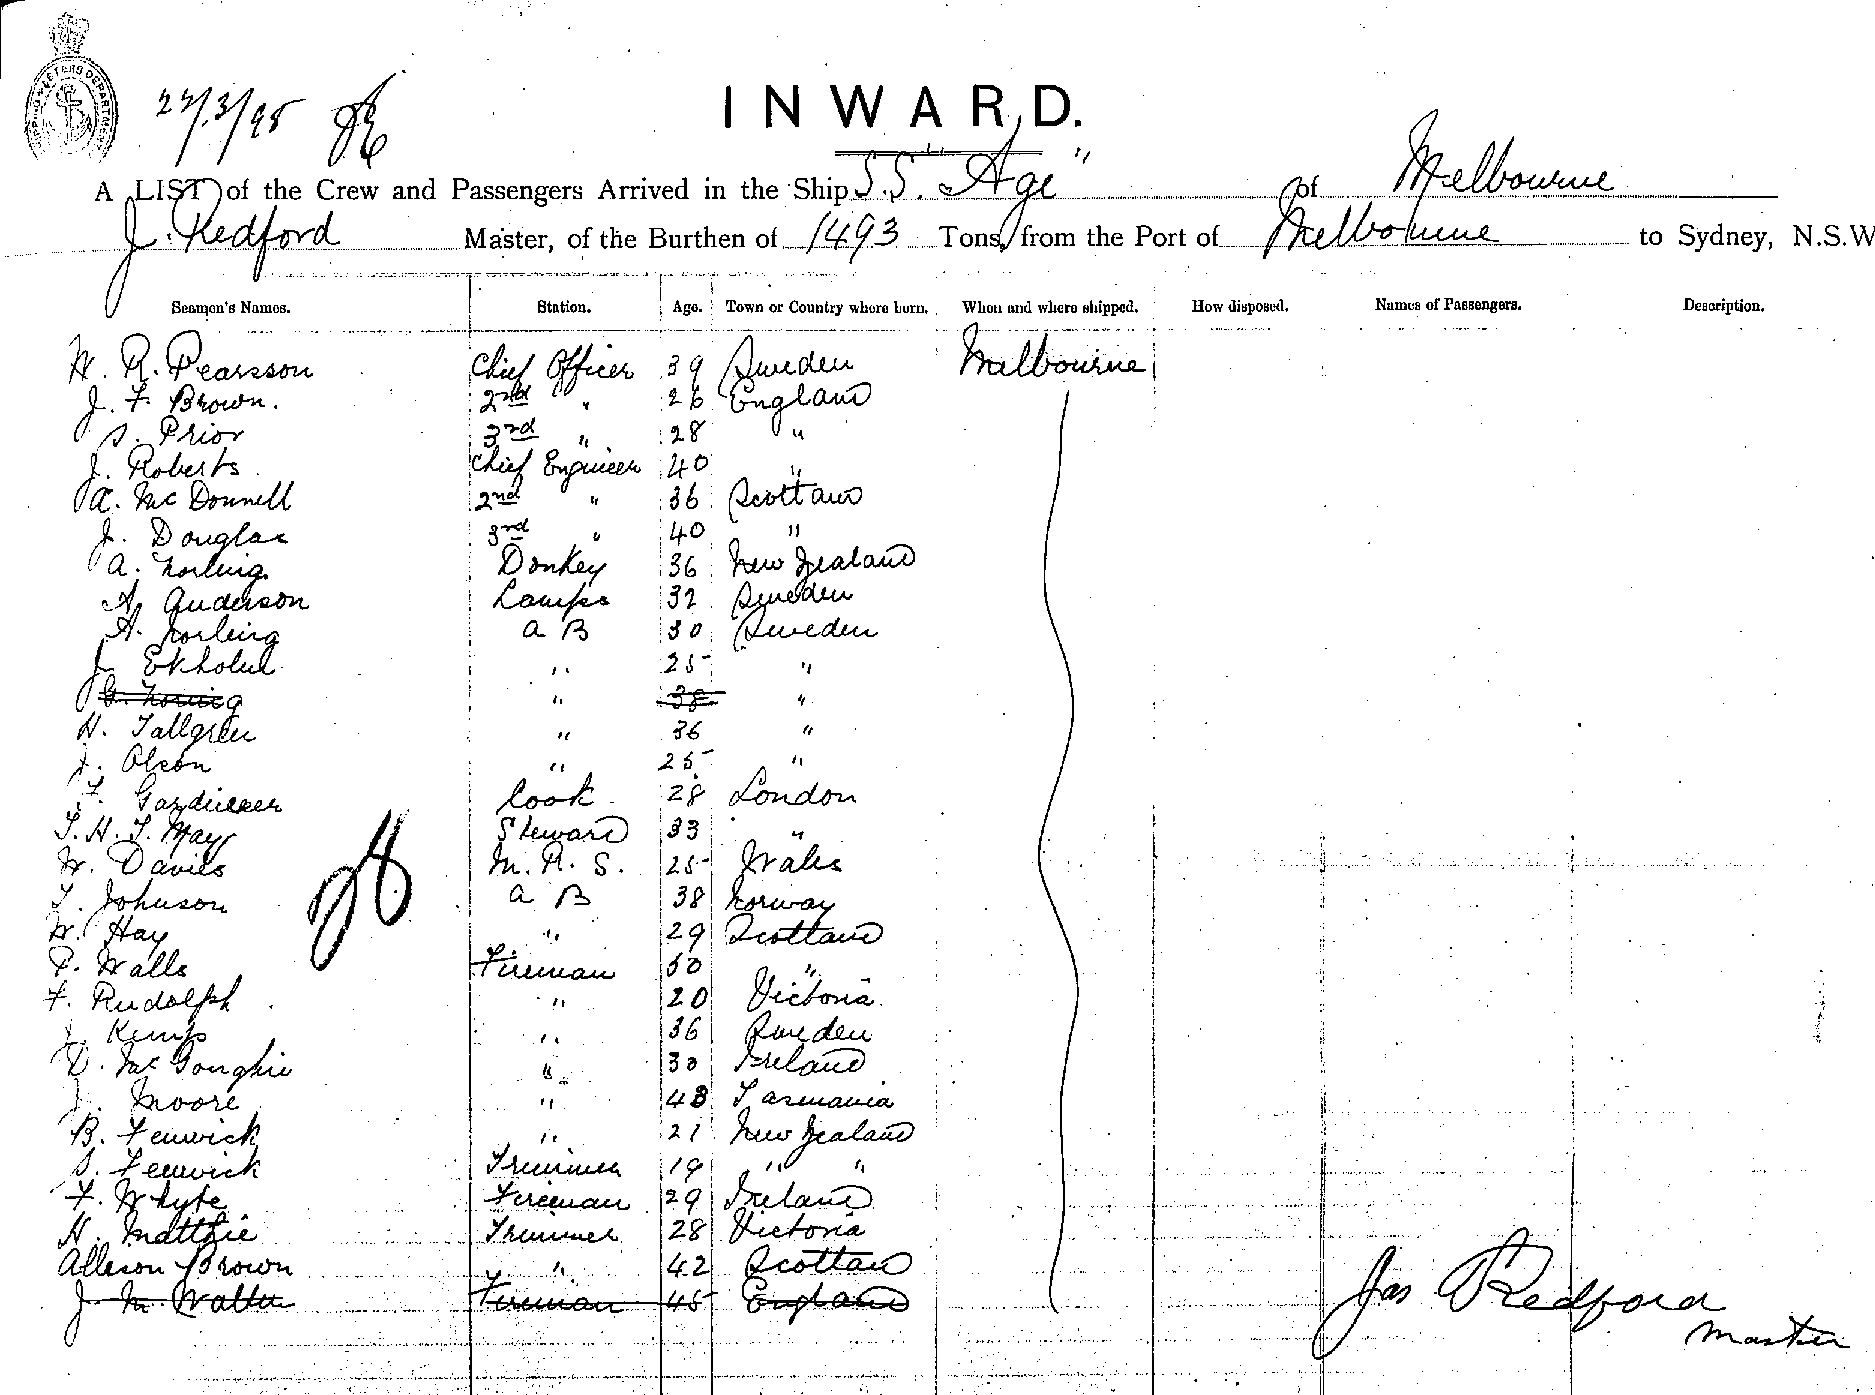 22/3/98
INWARD.
A LIST of the Crew and Passengers Arrived in the Ship S.S. "Age" of Melbourne
J. Redford Master, of the Burthen of 1493 Tons, from the Port of Melbourne to Sydney, N.S.W
Seamen's Names. Station. Age. Town or Country where born. When and where shipped. How disposed. Names of Passengers. Description.
N. R. Pearsson Chief Officer 39 Sweden Melbourne
J. F. Brown. 2nd " 26 England
S. Prior 3rd " 28 "
J. Roberts Chief Engineer 40 "
A. McDonnell 2nd " 36 Scotland
J. Douglas 3rd " 40 "
A. Norling Donkey 36 New Zealand
A. Anderson Lamps 32 Sweden
A. Norling A B 30 Sweden
J. Ekholm " 25 "
" 38 "
H. Tallgren " 36 "
J. Olson " 25 "
F. Gardiner Cook 28 London
T. H. J. May Steward 33 "
W. Davies M. R. S. 25 Wales
T. Johnson A B 38 Norway
W. Hay " 29 Scotland
P. Walls Fireman 50 "
F. Rudolph " 20 Victoria
J. Kemp " 36 Sweden
D. Mc " 30 Ireland
J. Moore " 48 Tasmania
B. Fenwick " 21 New Zealand
S. Fenwick Trimmer 19 " "
F. Whyte Fireman 29 Ireland
H. Matthie Trimmer 28 Victoria
Alleson Brown " 42 Scotland
J. M. Fireman 45 England
Jas Redford
Master